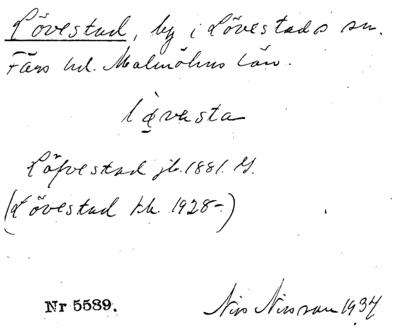 Lövestad, by i Lövestads sn.
Färs hd. Malmöhus län.
lövesta
Löfvestad jb. 1881.
(Lövestad tk. 1928-)
Nr 5589.
Nils Nilsson 1934